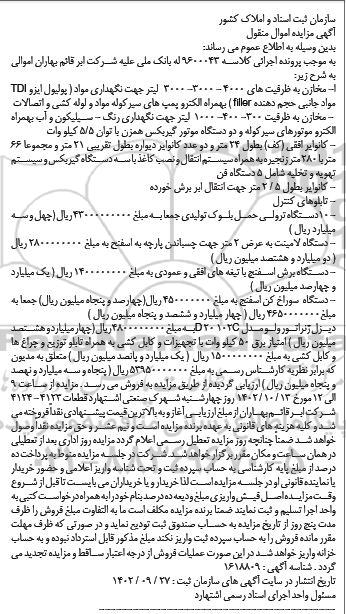 سازمان ثبت اسناد و املاک کشور
آگهی مزایده اموال منقول
بدین وسیله به اطلاع عموم می رساند:
به موجب پرونده اجرائی کلاسه ۹۶۰۰۰۴۳ له بانک ملی علیه شرکت ابر قائم بهاران اموالی
به شرح زیر:
۱- مخازن به ظرفیت های ۴۰۰۰ - ۳۰۰۰ - ۳۰۰۰ لیتر جهت نگهداری مواد ( پولیول ایزو TDI
مواد جانبی حجم دهنده filler ) بهمراه الکترو پمپ های سیرکوله مواد و لوله کشی و اتصالات
- مخازن به ظرفیت ۳۰۰ - ۴۰۰ - ۱۰۰۰ لیتر جهت نگهداری رنگ - سیلیکون و آب بهمراه
الکترو موتورهای سیرکوله و دو دستگاه موتور گیربکس همزن با توان ۵/۵ کیلو وات
- کانوایر افقی (کف) بطول ۲۴ متر و دو عدد کانوایر دیواره بطول تقریبی ۲۱ متر و مجموعا ۶۶
متر با ۲۸۰ متر زنجیره به همراه سیستم انتقال و نصب کاغذ با سه دستگاه گیربکس و سیستم
تهویه و تخلیه شامل ۵ دستگاه فن
- کانوایر بطول ۲/۵ متر جهت انتقال ابر برش خورده
- تابلوهای کنترل
- ۱۰ دستگاه ترولی حمل بلوک تولیدی جمعا به مبلغ ۴۳۰۰۰۰۰۰۰۰۰ ریال (چهل و سه
میلیارد ریال )
- دستگاه لامینت به عرض ۲ متر جهت چسباندن پارچه به اسفنج به مبلغ ۲۸۰۰۰۰۰۰۰۰ ریال
( دو میلیارد و هشتصد میلیون ریال )
- دستگاه برش اسفنج با تیغه های افقی و عمودی به مبلغ ۱۴۰۰۰۰۰۰۰۰ ریال ( یک میلیارد
و چهارصد میلیون ریال )
- دستگاه سوراخ کن اسفنج به مبلغ ۴۵۰۰۰۰۰۰۰ ریال(چهارصد و پنجاه میلیون ریال) جمعا به
مبلغ ۴۶۵۰۰۰۰۰۰۰ ریال ( چهار میلیارد و ششصد و پنجاه میلیون ریال )
دیزل ژنراتور ولوو مدل به مبلغ ۴۸۰۰۰۰۰۰۰۰ ریال(چهار میلیارد و هشتصد
میلیون ریال ) امتیاز برق ۵۰ کیلو وات با تجهیزات و کابل کشی به همراه تابلو توزیع و چراغ ها
و کابل کشی به مبلغ ۱۵۰۰۰۰۰۰۰۰ ریال ( یک میلیارد و پانصد میلیون ریال ) متعلق به مدیون
که برابر نظریه کارشناس رسمی به مبلغ ۵۳۹۵۰۰۰۰۰۰۰ ریال (پنجاه و سه میلیارد و نهصد
و پنجاه میلیون ریال ) ارزیابی گردیده از طریق مزایده به فروش می رسد . مزایده از ساعت ۹
الی ۱۲ مورخ ۱۳ / ۱۰ / ۱۴۰۲ روز چهارشنبه شهرک صنعتی اشتهارد قطعات ۴۱۲۳ - ۴۱۲۴
شرکت ابر قائم بهاران از مبلغ ارزیابی آغاز و به بالاترین قیمت پیشنهادی نقدا فروخته می
شد و کلیه هزینه های قانونی به عهده برنده مزایده است و نیم عشر و حق مزایده نقدا وصول
خواهد شد ضمنا چنانچه روز مزایده تعطیل رسمی اعلام گردد مزایده روز اداری بعد از تعطیلی
در همان ساعت و مکان مقرر برگزار خواهد شد شرکت در جلسه مزایده منوط به پرداخت ده
درصد از مبلغ پایه کارشناسی به حساب سپرده ثبت و تحت شناسه واریز اعلامی و حضور خریدار
یا نماینده قانونی او در جلسه مزایده است لذا خریدار و یا خریداران می بایست تا قبل از شروع
وقت مزایده اصل فیش واریزی مبلغ ودیعه ده درصد بنام خود را به همراه درخواست کتبی به
واحد اجرا تسلیم و ثبت نمایند ضمنا برنده مزایده مکلف است ما به التفاوت مبلغ فروش را ظرف
مدت پنج روز از تاریخ مزایده به حساب صندوق ثبت تودیع نماید و در صورتی که ظرف مهلت
مقرر مانده فروش را به حساب سپرده ثبت واریز نکند مبلغ مذکور قابل استرداد نبوده و به حساب
خزانه واریز خواهد شد در این صورت عملیات فروش از درجه اعتبار ساقط و مزایده تجدید می
گردد . شناسه آگهی : ۱۶۱۸۸۰۹
تاریخ انتشار در سایت آگهی های سازمان ثبت : ۲۷ / ۰۹ / ۱۴۰۲
مسئول واحد اجرای اسناد رسمی اشتهارد